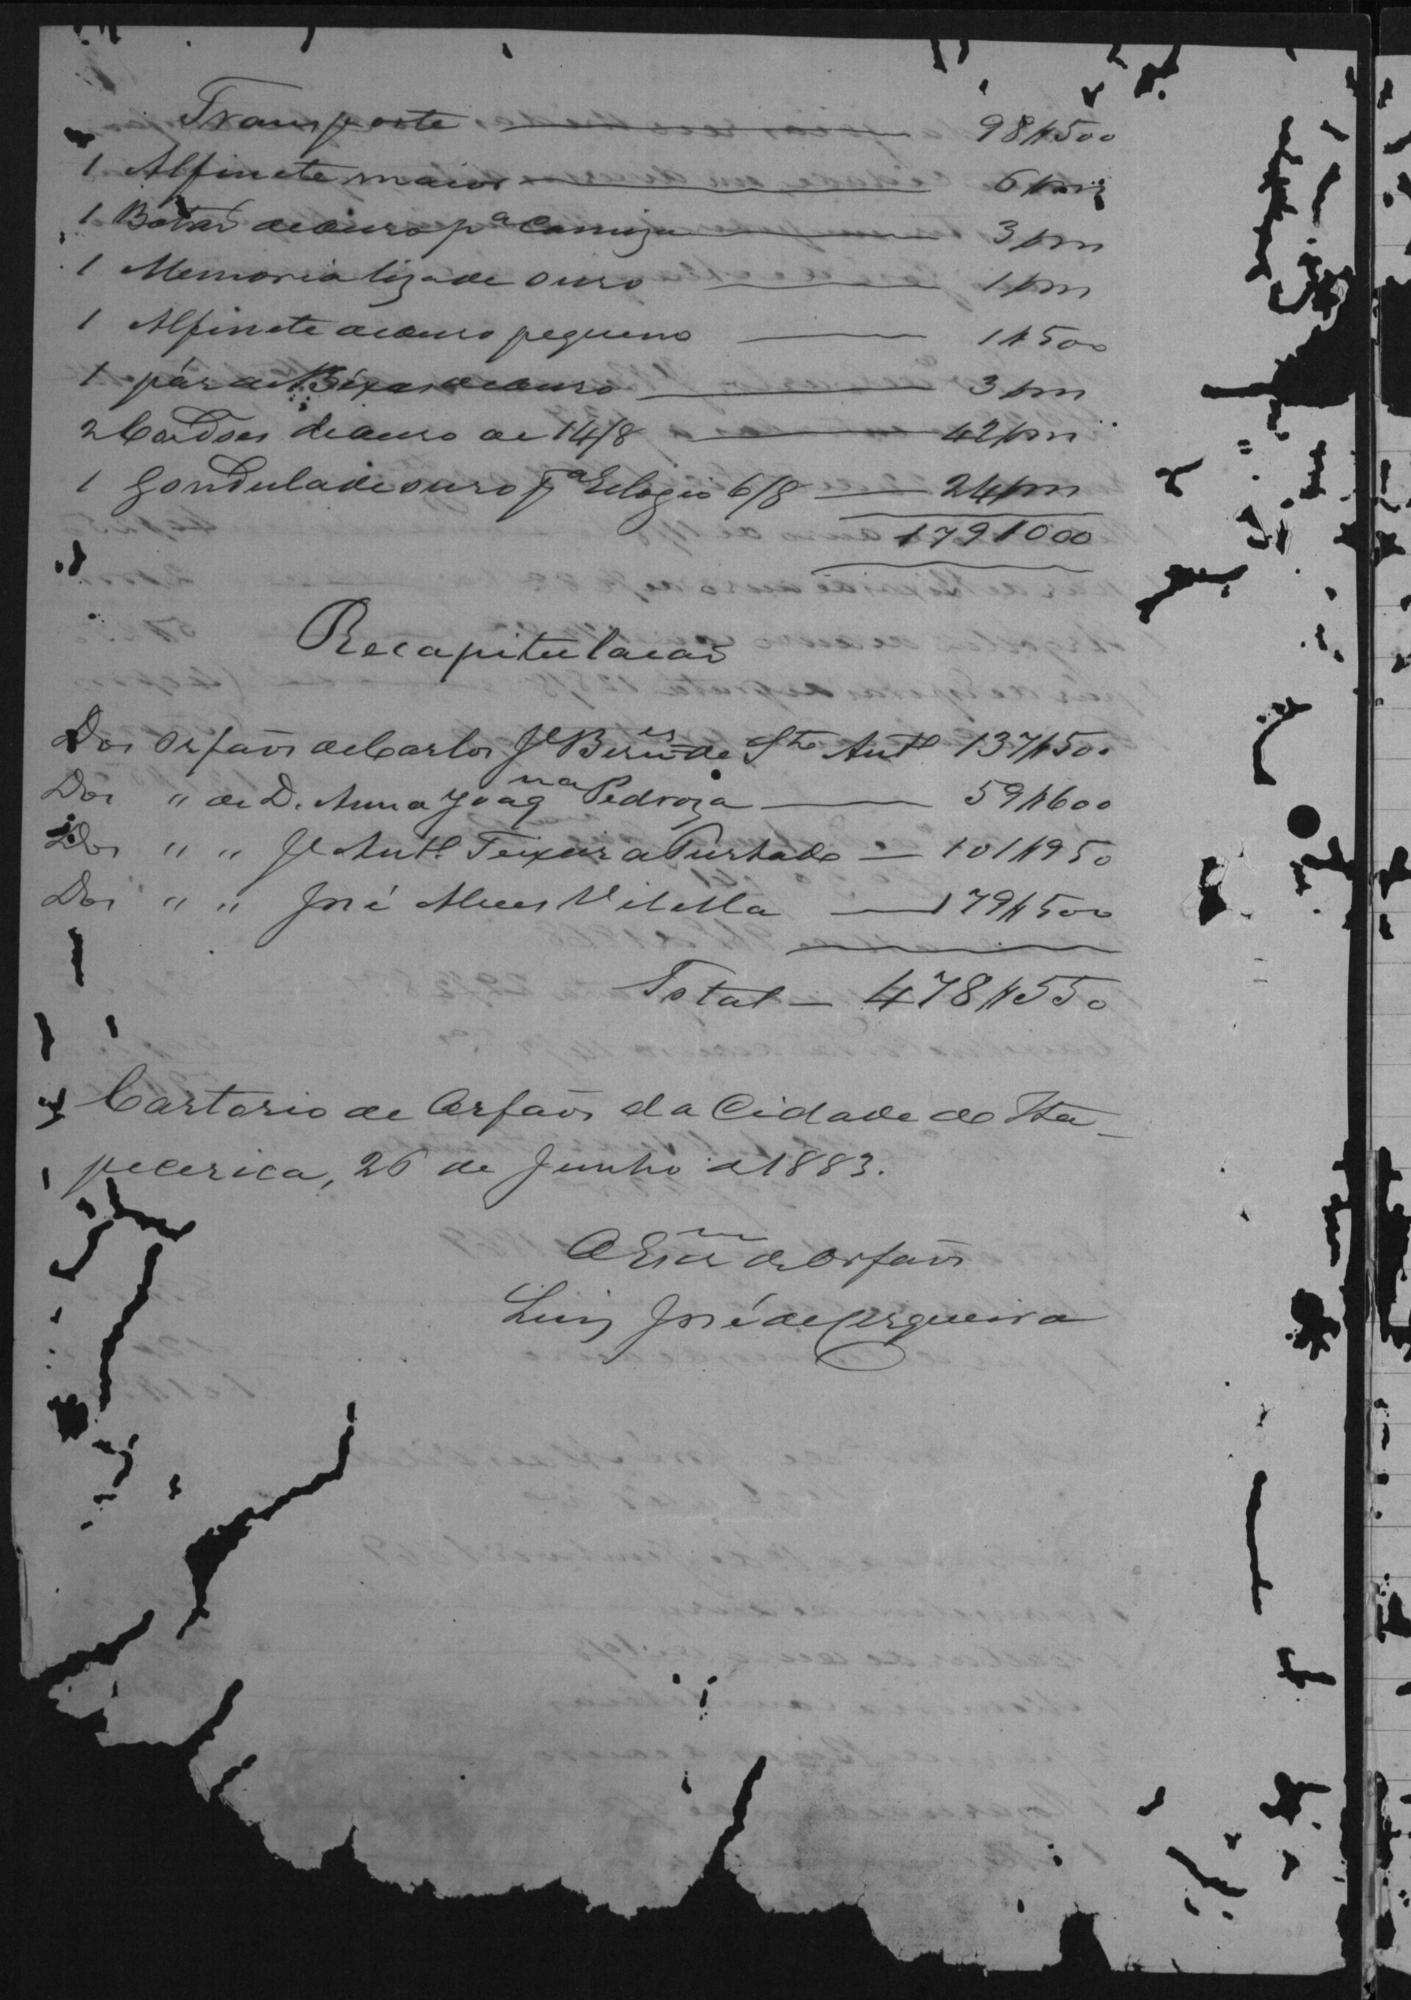 Transporte — 98$500
1 Alfinete maior — 6$000
1 Botaõ de ouro pª Camiza — 3$000
1 Memoria liza de ouro — 1$000
1 Alfinete de ouro pequeno — 1$500
1 pár de Bixas de ouro — 3$000
2 Cordoes de ouro de 14/8 — 42$000
1 Gondula de ouro pª Relogio 6/8 — 24$000
179$000
Recapitulacaõ
Dos Orfaõs de Carlos Jé Bernes de Sto Antº 137$500
Dos " de D. Anna Joaqna Pedroza — 59$600
Dos " " Jé Antº Teixeira Purtado — 101$950
Dos " " José Alves Vilella — 179$500
Total — 478$550
Cartorio de Orfaõs da Cidade de Ita-
pecerica, 26 de Junho d 1883.
O Escram de Orfaõs
Luiz José de Cerqueira